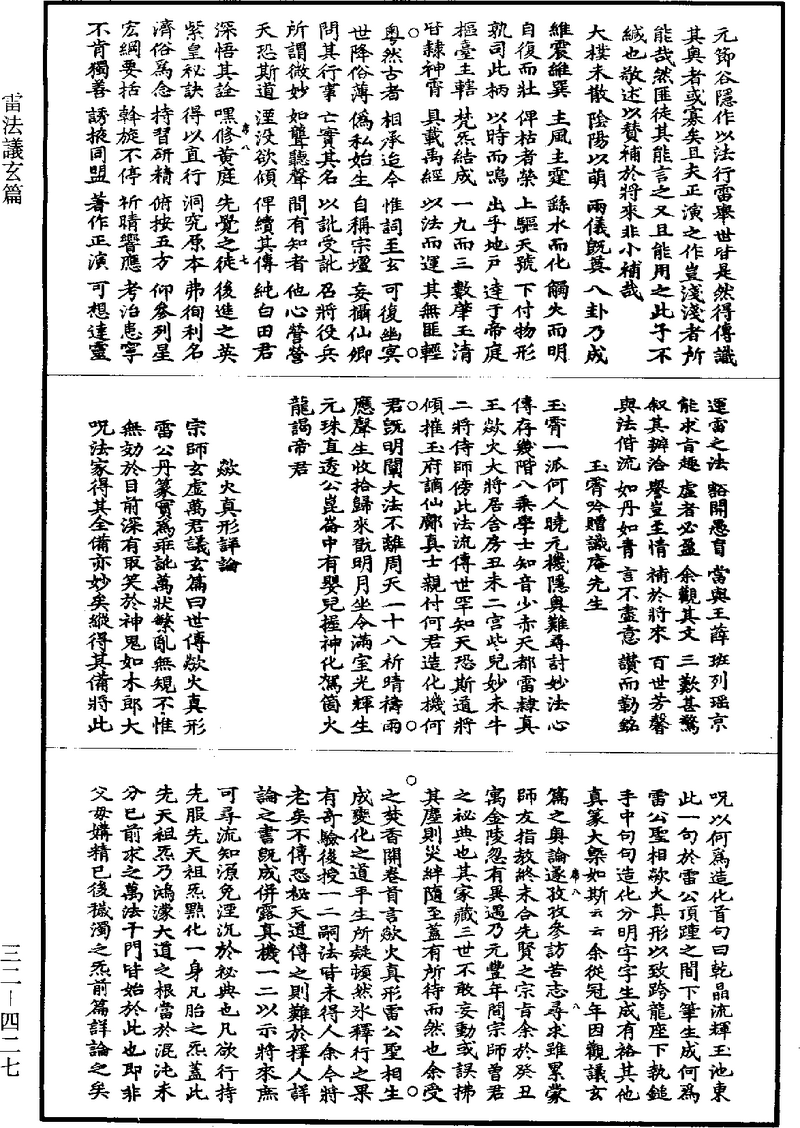 雷法議玄篇
三二—四二七
元節谷隱作以法行雷舉世皆是然得傳識
其奧者或寡矣且夫正演之作豈淺淺者所
能哉然匪徒其能言之又且能用之此予不
緘也敬述以贊補於將來非小補哉
大樸未散 陰陽以萌 兩儀既奠 八卦乃成
維震雝巽 主風主霆 繇水而化 觸火而明
自復而壯 俾枯者榮 上驅天號 下付物形
孰司此柄 以時而鳴 出乎地戶 達于帝庭
樞臺主轄 梵炁結成 一九而三 數肇玉清
皆隸神霄 具載禹經 以法而運 其無匪輕
粵然古者 相承迄今 惟詞玉玄 可復幽冥
世降俗薄 偽私始生 自稱宗壇 妄攝仙卿
問其行事 亡實其名 以訛受訛 召將役兵
所謂微妙 如聾聽聲 間有知者 他心營營
天恐斯道 湮没欲傾 俾續其傳 純白田君
深悟其詮 嘿修黃庭 先覺之徒 後進之英
席八
七
紫皇秘訣 得以直行 洞究原本 弗徇利名
濟俗爲念 持習研精 俯按五方 仰參列星
宏綱要括 斡旋不停 祈晴響應 考治恵寧
不肯獨善 誘掖同盟 著作正演 可想達靈
運雷之法 豁開愚盲 當與王薛 班列瑶京
能求言趣 虛者必盈 余觀其文 三歎甚驚
叙其辨洽 譽豈王情 補於將來 百世芳馨
與法偕流 如丹如青 言不盡意 讚而勤銘
玉霄吟贈識庵先生
玉霄一派何人曉元機隱奧難尋討妙法心
傳存幾階八乗學士知音少赤天都雷隸真
王歘火大將居合房丑未二宮些兒妙未牛
二將侍師傍此法流傳世罕知天恐斯道將
傾摧玉府謫仙鄺真士親付何君造化機何
君既明闡大法不離周天一十八祈晴禱雨
應聲生收拾歸來翫明月坐令滿室光輝生
元珠直透公崑崙中有嬰兒握神化駕箇火
龍謁帝君
歘火真形詳論
宗師玄虛萬君議玄篇曰世傳歘火真形
雷公丹篆實爲乖訛萬狀繁亂無䂓不惟
無効於目前深有取笑於神鬼如木郎大
呪法家得其全備亦妙矣縱得其備將此
呪以何爲造化首句曰乾晶流輝玉池東
此一句於雷公頂踵之間下筆生成何爲
雷公聖相歘火真形以致跨龍座下執鎚
手中句句造化分明字字生成有格其他
真篆大槩如斯云云余從冠年因觀議玄
席八
八
篇之奥論遂孜孜參訪苦志尋求雖累蒙
師友指教終未合先賢之宗肯余於癸丑
寓金陵忽有異遇乃元豐年間宗師曾君
之秘典也其家藏三世不敢妄動或誤拂
其塵則災絆隨至蓋有所待而然也余受
之焚香開卷首言歘火真形雷公聖相生
成變化之道平生所疑頓然氷釋行之果
有奇驗後授一二嗣法皆未得人余今將
老矣不傳恐秘天道傳之則難於擇人詳
論之書既成併露真機一二以示將來庶
可尋流知源免湮沉於秘典也凡欲行持
先服先天祖炁點化一身凡胎之炁蓋此
先天祖炁乃鴻濛大道之根當於混沌未
分已前求之萬法千門皆始於此也即非
父母媾精已後穢濁之炁前篇詳論之矣